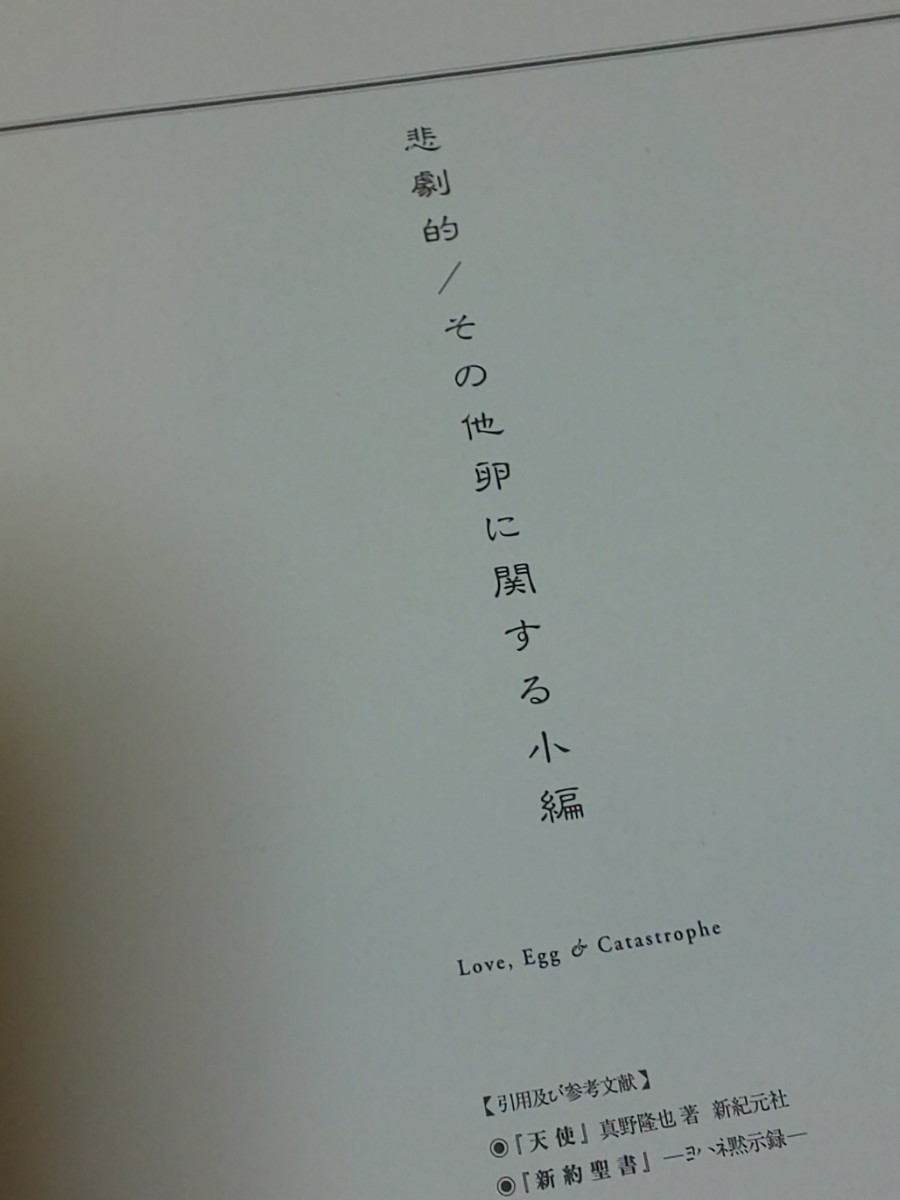 悲劇的／その他卵に関する小編
Love, Egg & Catastrophe
【引用及び参考文献】
◉『天使』真野隆也 著 新紀元社
◉『新約聖書』―ヨハネ黙示録―